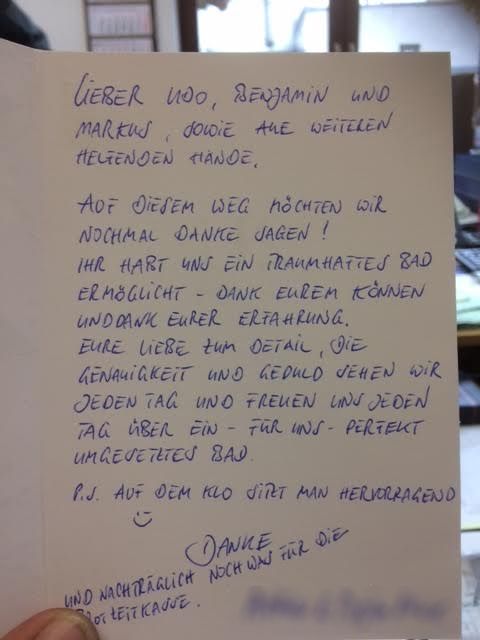 LIEBER UDO, BENJAMIN UND
MARKUS, SOWIE ALLE WEITEREN
HELFENDEN HÄNDE.
AUF DIESEM WEG MÖCHTEN WIR
NOCHMAL DANKE SAGEN!
IHR HABT UNS EIN TRAUMHAFTES BAD
ERMÖGLICHT - DANK EUREM KÖNNEN
UND DANK EURER ERFAHRUNG.
EURE LIEBE ZUM DETAIL, DIE
GENAUIGKEIT UND GEDULD SEHEN WIR
JEDEN TAG UND FREUEN UNS JEDEN
TAG ÜBER EIN - FÜR UNS - PERFEKT
UMGESETZTES BAD.
P.S. AUF DEM KLO SITZT MAN HERVORRAGEND
☺
DANKE
UND NACHTRÄGLICH NOCH WAS FÜR DIE
BROTZEITKASSE.